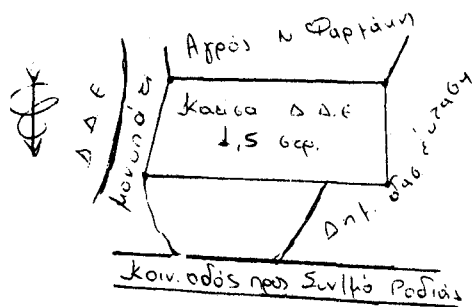 Αγρός Ν Φαρμάκη
Δ Δ Ε
μονοπάτι
Κατσα Δ Δ Ε
1,5 στρ.
Δημ. δασ. έκταση
Κοιν. οδός προς Συν/μό Ροδιάς